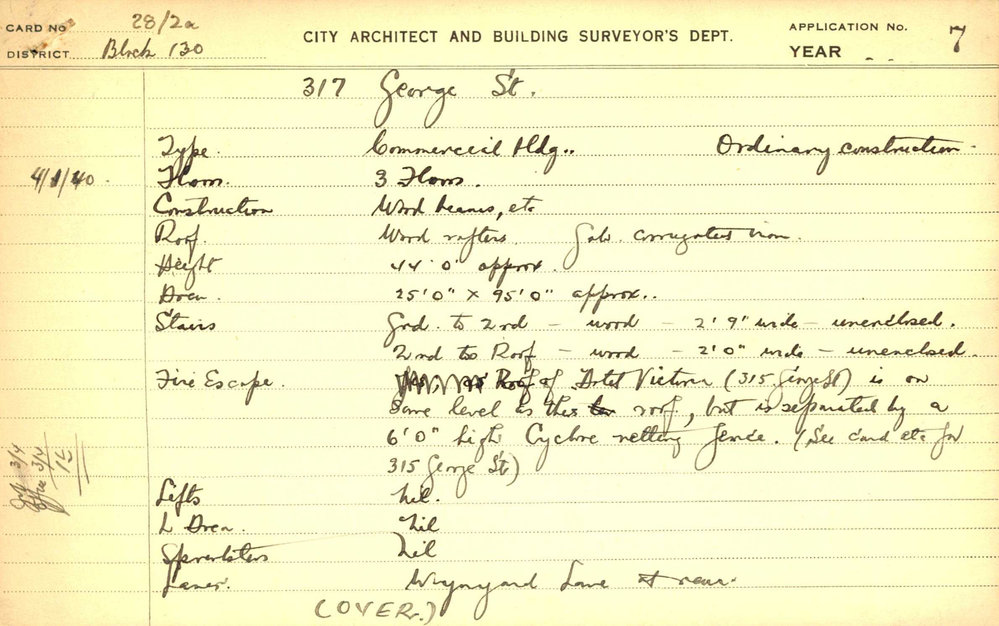 CARD No 28/2a
DISTRICT Block 130
CITY ARCHITECT AND BUILDING SURVEYOR'S DEPT.
APPLICATION No. 7
YEAR
317 George St.
Type. Commercial bldg.. Ordinary construction.
4/1/40. Floors. 3 Floors.
Construction Wood beams, etc
Roof. Wood rafters. Galv. corrugated iron.
Height 44'0" approx.
Area. 25'0" x 95'0" approx..
Stairs Grd. to 2nd - wood - 2'9" wide - unenclosed.
2nd to Roof - wood - 2'0" wide - unenclosed.
Fire Escape. Roof of Hotel Victoria (315 George St) is on
same level as this roof, but is separated by a
6'0" high Cyclone netting fence. (See card etc for
315 George St)
3/4
3/4
Lifts Nil.
L Area. Nil
Sprinklers Nil
Lanes. Wynyard Lane at rear.
(OVER.)